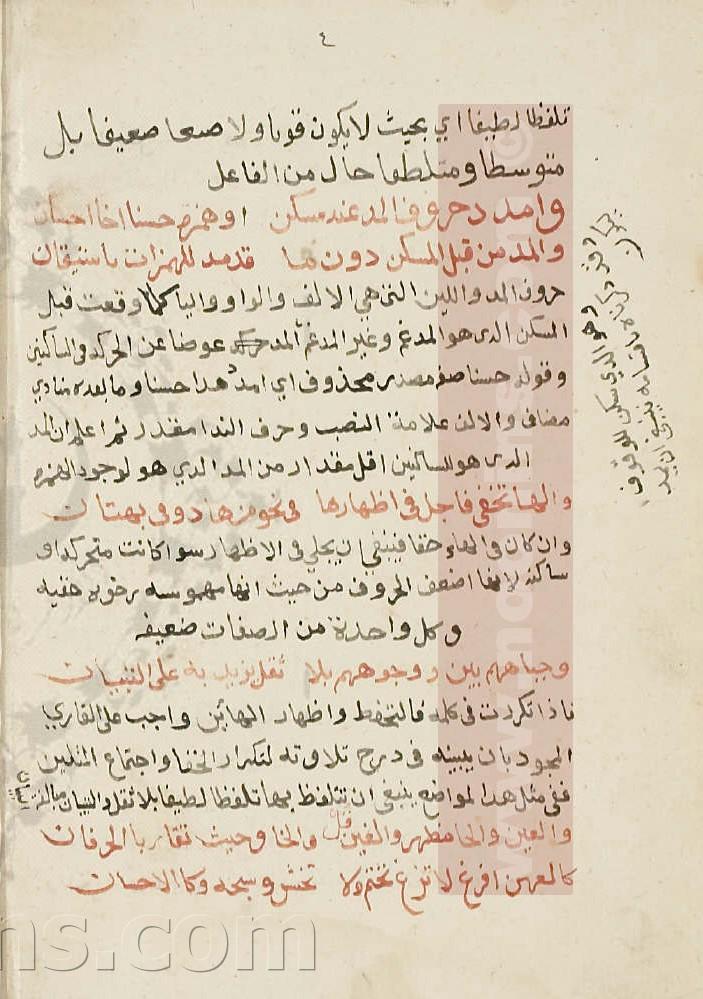 ٤
تلفظا لطيفا اي بحيث لا يكون قويا ولا صعبا ضعيفا بل
متوسطا ومتلطفا حال من الفاعل
وامدد حروف المد عند مسكن او همزة حسنا اخا احسان
والمد من قبل المسكن دون ما قد مد للهمزات باستيقان
حروف المد واللين التي هي الالف والواو واليا كلما وقعت قبل
المسكن الذي هو المدغم وغير المدغم المد عوضا عن الحركة في الساكنين
وقوله حسنا صفة مصدر محذوف اي امدد هدا حسنا وما بعده منادي
مضاف والالف علامة النصب وحرف الندا مقدر ثم اعلم ان المد
الذي هو للساكنين اقل مقدار من المد الذي هو لوجود الهمزة
والها تخفي فاجل في اظهارها في نحو من هاد وفي بهتان
وان كان في الهاء خفا فينبغي ان يجلي في الاظهار سوا كانت متحركة او
ساكنة لانها اضعف الحروف من حيث انها مهموسه رخوه خفيه
وكل واحدة من الصفات ضعيفه
وجباههم بين ووجوههم بلا ثقل يزيد به علي التبيان
فاذا تكررت في كلمه فالتحفظ واظهار الهائين واجب علي القاري
المجود بان يبينه في درج تلاوته لتكرار الخفا واجتماع المثلين
ففي مثل هذا المواضع ينبغي ان تتلفظ بها تلفظا لطيفا بلا ثقل والبيان مبالغة
والعين والحا مظهر والغين قل والخا وحيث تقارب الحرفان
كالعهن افرغ لا تزغ نختم ولا تخش وسبحه وكالاحسان
الذي سكن للوقوف
ينبغي ان يمد
ms.com
www.ma ms.com ©